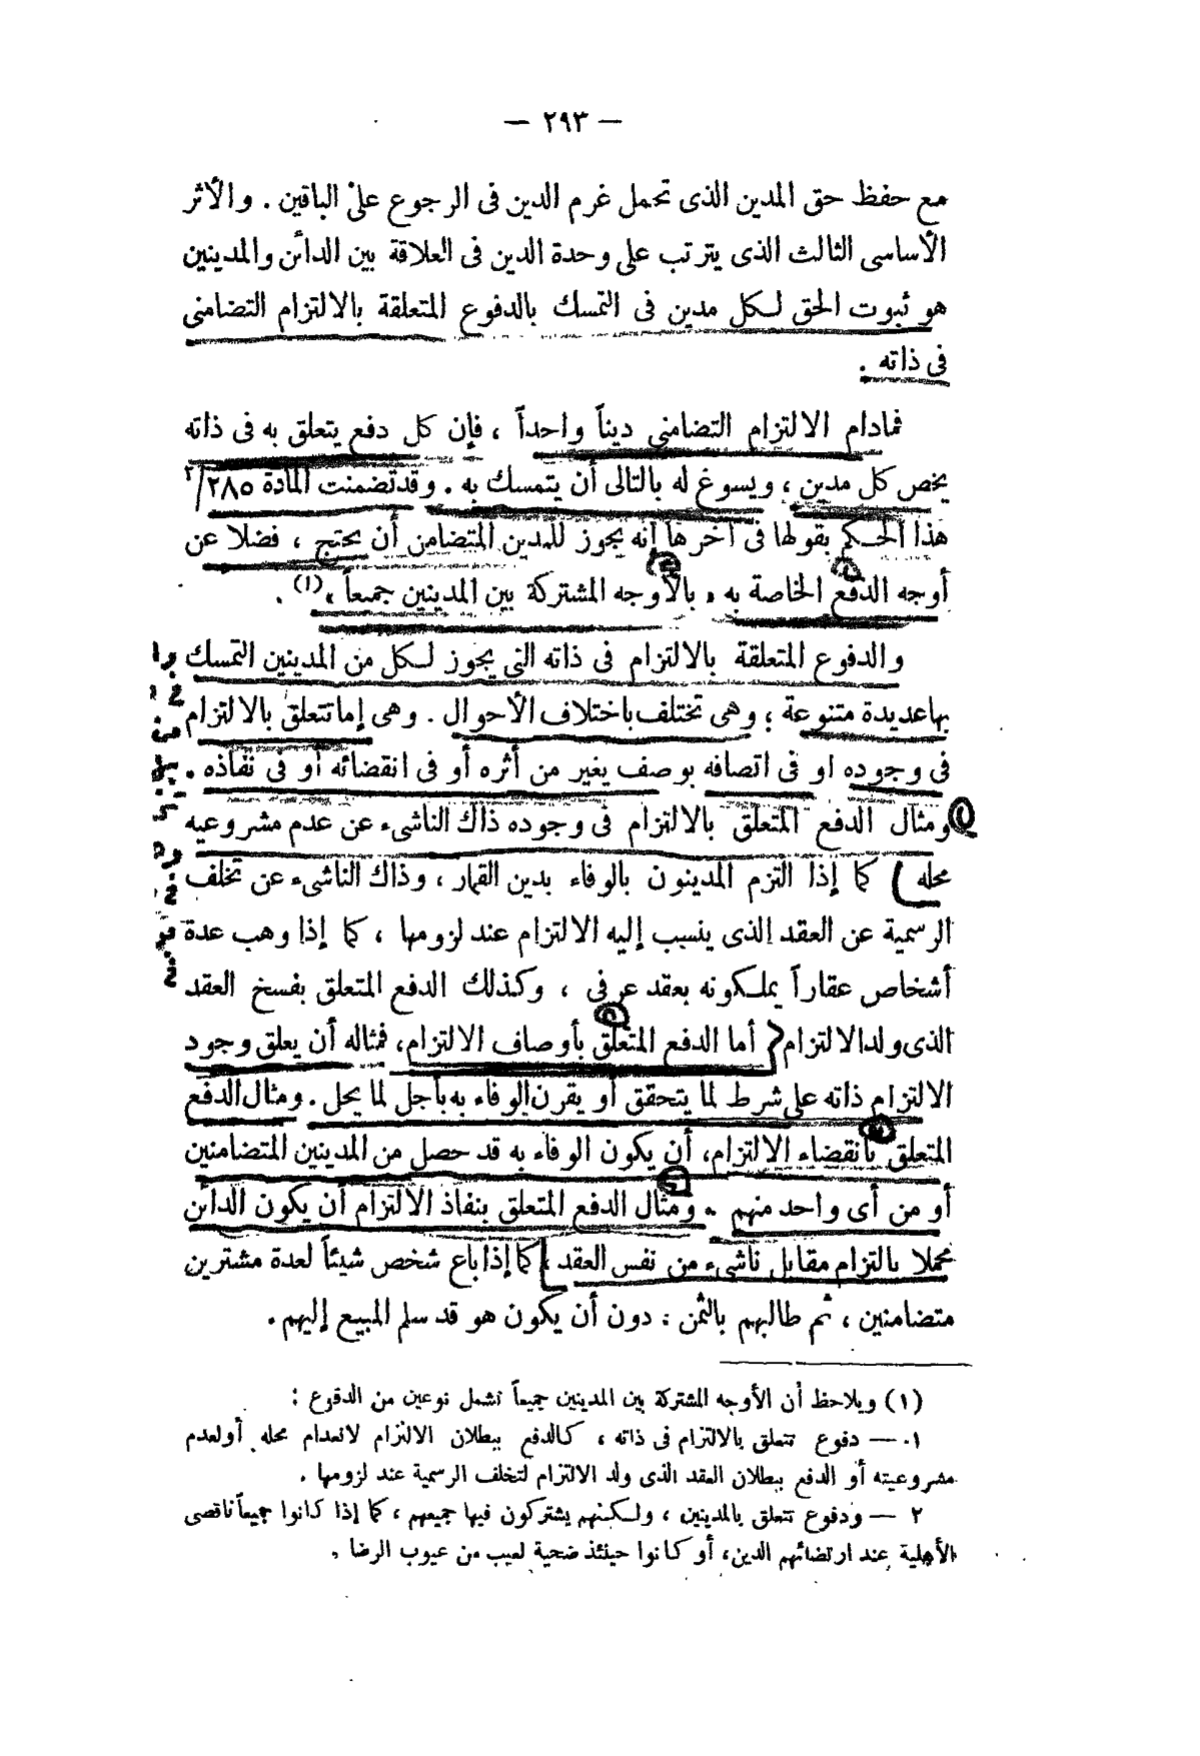 — ٢٩٣ —
مع حفظ حق المدين الذى تحمل غرم الدين فى الرجوع على الباقين . والأثر
الأساسى الثالث الذى يترتب على وحدة الدين فى العلاقة بين الدائن والمدينين
هو ثبوت الحق لكل مدين فى التمسك بالدفوع المتعلقة بالالتزام التضامنى
فى ذاته .
فمادام الالتزام التضامنى ديناً واحداً ، فإن كل دفع يتعلق به فى ذاته
يخص كل مدين ، ويسوغ له بالتالى أن يتمسك به . وقد تضمنت المادة ٢٨٥/٢
هذا الحكم بقولها فى آخرها إنه يجوز للمدين المتضامن أن يحتج ، فضلا عن
أوجه الدفع الخاصة به ، بالأوجه المشتركة بين المدينين جميعاً ،(١) .
والدفوع المتعلقة بالالتزام فى ذاته التى يجوز لكل من المدينين التمسك
بها عديدة متنوعة ؛ وهى تختلف باختلاف الأحوال . وهى إما تتعلق بالالتزام
فى وجوده او فى اتصافه بوصف يغير من أثره أو فى انقضائه أو فى نفاذه .
ومثال الدفع المتعلق بالالتزام فى وجوده ذاك الناشىء عن عدم مشروعيه
محله ) كما إذا التزم المدينون بالوفاء بدين القمار ، وذاك الناشىء عن تخلف
الرسمية عن العقد الذى ينسب إليه الالتزام عند لزومها ، كما إذا وهب عدة
أشخاص عقاراً يملكونه بعقد عرفى ، وكذلك الدفع المتعلق بفسخ العقد
الذى ولد الالتزام ( أما الدفع المتعلق بأوصاف الالتزام، فمثاله أن يعلق وجود
الالتزام ذاته على شرط لما يتحقق أو يقرن الوفاء به بأجل لما يحل . ومثال الدفع
المتعلق بانقضاء الالتزام، أن يكون الوفاء به قد حصل من المدينين المتضامنين
أو من أى واحد منهم . ومثال الدفع المتعلق بنفاذ الالتزام أن يكون الدائن
محملا بالتزام مقابل ناشىء من نفس العقد ، كما إذا باع شخص شيئاً لعدة مشترين
متضامنين ، ثم طالبهم بالثمن : دون أن يكون هو قد سلم المبيع إليهم .
(١) ويلاحظ أن الأوجه المشتركة بين المدينين جميعاً تشمل نوعين من الدفوع :
١ — دفوع تتعلق بالالتزام فى ذاته ، كالدفع ببطلان الالتزام لانعدام محله أو لعدم
مشروعيته أو الدفع ببطلان العقد الذى ولد الالتزام لتخلف الرسمية عند لزومها .
٢ — ودفوع تتعلق بالمدينين ، ولكنهم يشتركون فيها جميعهم ، كما إذا كانوا جميعاً ناقصى
الأهلية عند ارتضائهم الدين، أو كانوا حينئذ ضحية لعيب من عيوب الرضا .